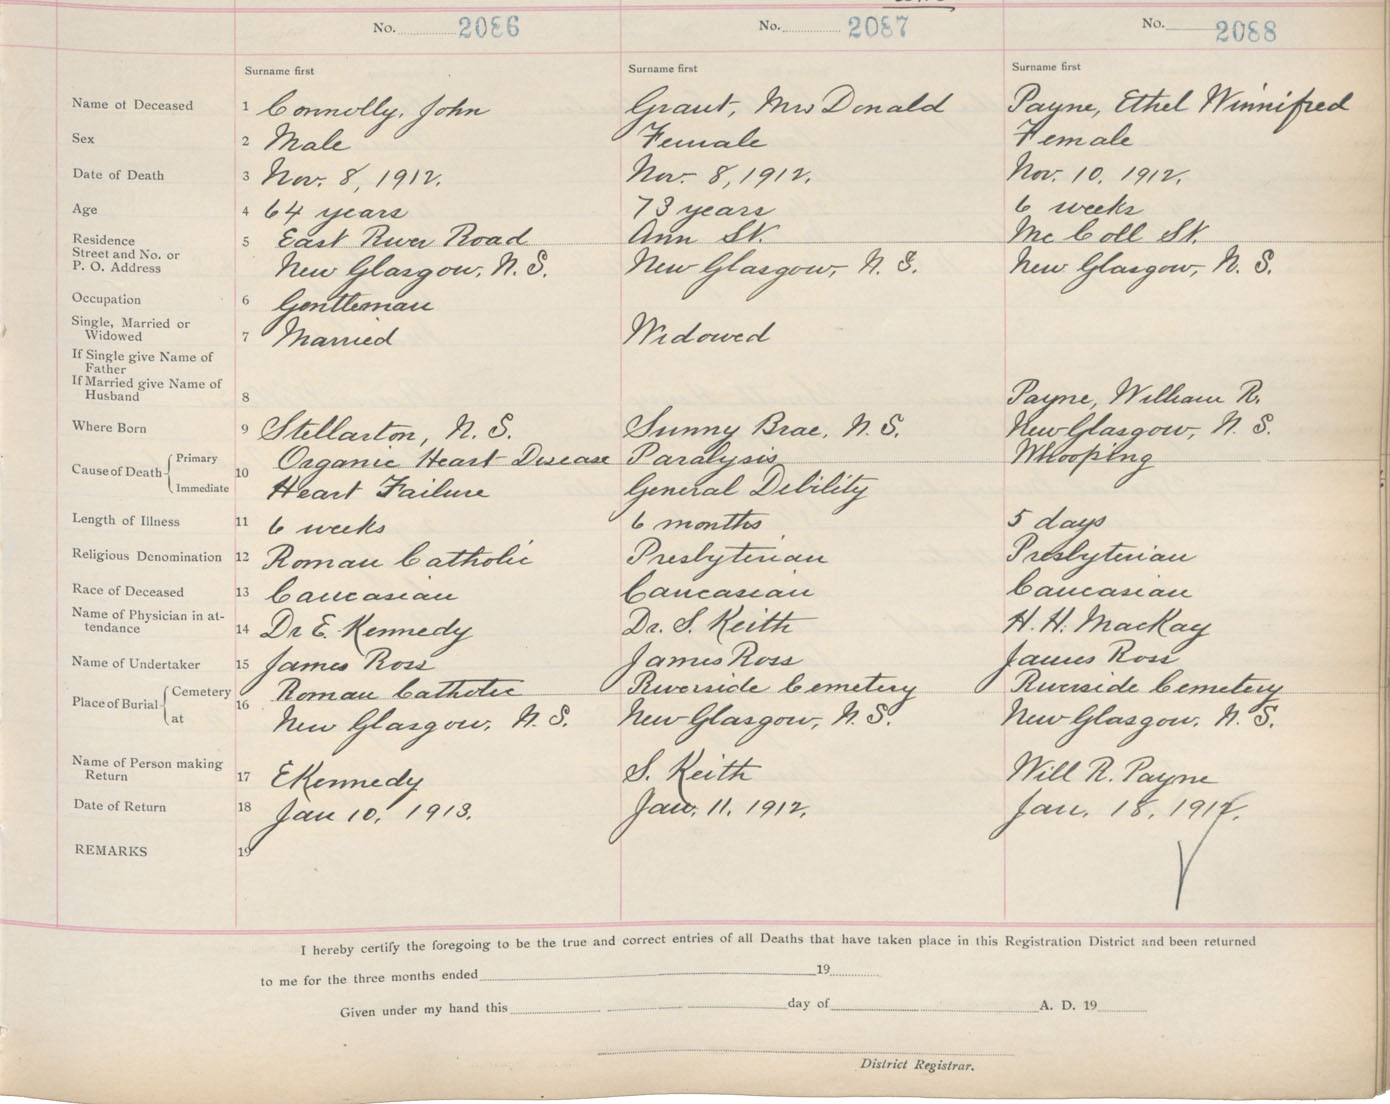 No. 2086 No. 2087 No. 2088
Surname first Surname first Surname first
Name of Deceased 1 Connolly, John Grant, Mrs Donald Payne, Ethel Winnifred
Sex 2 Male Female Female
Date of Death 3 Nov. 8, 1912. Nov. 8, 1912. Nov. 10, 1912.
Age 4 64 years 73 years 6 weeks
Residence 5 East River Road Ann St. Mc Coll St.
Street and No. or
P. O. Address New Glasgow, N. S. New Glasgow, N. S. New Glasgow, N. S.
Occupation 6 Gentleman
Single, Married or
Widowed 7 Married Widowed
If Single give Name of
Father
If Married give Name of
Husband 8 Payne, William R.
Where Born 9 Stellarton, N. S. Sunny Brae, N. S. New Glasgow, N. S.
Cause of Death 10 Primary Organic Heart Disease Paralysis Whooping
Immediate Heart Failure General Debility
Length of Illness 11 6 weeks 6 months 5 days
Religious Denomination 12 Roman Catholic Presbyterian Presbyterian
Race of Deceased 13 Caucasian Caucasian Caucasian
Name of Physician in at-
tendance 14 Dr E. Kennedy Dr. S. Keith H. H. MacKay
Name of Undertaker 15 James Ross James Ross James Ross
Place of Burial 16 Cemetery Roman Catholic Riverside Cemetery Riverside Cemetery
at New Glasgow, N. S. New Glasgow, N. S. New Glasgow, N. S.
Name of Person making
Return 17 E Kennedy S. Keith Will R. Payne
Date of Return 18 Jan 10, 1913. Jan. 11. 1912. Jan. 18. 1912.
REMARKS 19
I hereby certify the foregoing to be the true and correct entries of all Deaths that have taken place in this Registration District and been returned
to me for the three months ended 19
Given under my hand this day of A. D. 19
District Registrar.